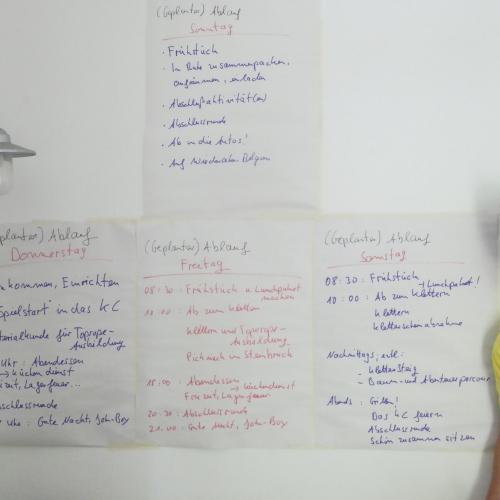 (Geplanter) Ablauf
Sonntag
· Frühstück
· In Ruhe zusammenpacken,
aufräumen, einladen
· Abschlußaktivität(en)
· Abschlussrunde
· Ab in die Autos!
· Auf Wiedersehen Belgien
eplanter) Ablauf
Donnerstag
kommen, Einrichten
Spielstart in das KC
terialkunde für Toprope-
Ausbildung
Uhr: Abendessen
→ Küchendienst
eizeit, Lagerfeuer...
schlussrunde
Uhr: Gute Nacht, John-Boy
(Geplanter) Ablauf
Freitag
08:30: Frühstück u. Lunchpaket
machen
10:00: Ab zum Klettern
Klettern und Toprope-
Ausbildung
Picknick im Steinbruch
18:00: Abendessen
→ Küchendienst
Freizeit, Lagerfeuer
20:30: Abschlussrunde
21:00: Gute Nacht, John-Boy
(Geplanter) Ablauf
Samstag
08:30: Frühstück
→ Lunchpaket!
10:00: Ab zum Klettern
Klettern
Kletterscheinabnahme
Nachmittags, evtl:
- Klettersteig
- Baum- und Abenteuerparcour
Abends: Grillen!
Das KC feiern
Abschlussrunde
Schön zusammen sitzen